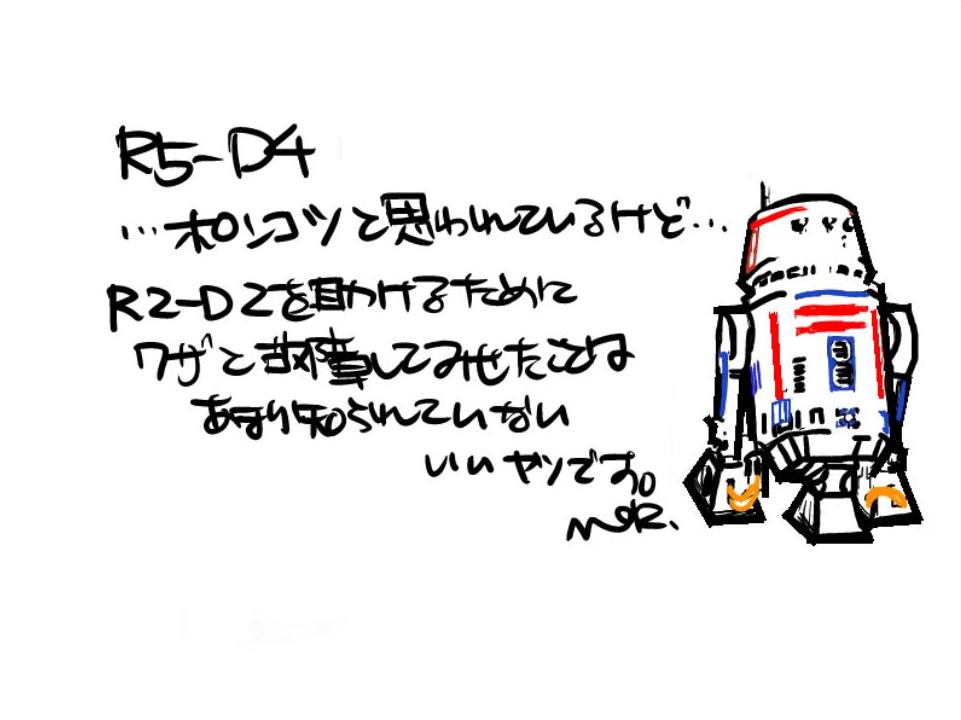 R5-D4
…ポンコツと思われているけど…
R2-D2を助けるために
ワザと故障してみせたことは
あまり知られていない
いいヤツです。